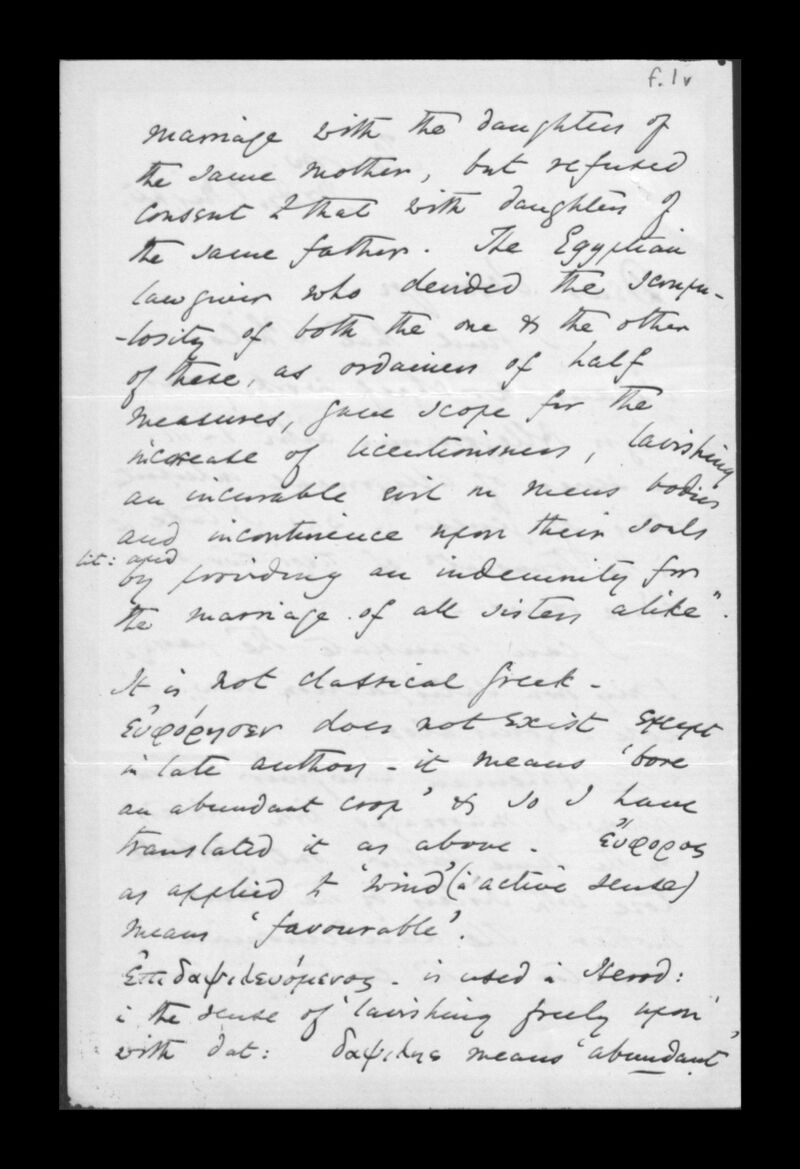 f. 1v
marriage with the daughters of
the same mother, but refused
consent to that with daughters of
the same father. The Egyptian
lawgiver who derided the scrupu-
-losity of both the one & the other
of these, as ordainers of half
measures, gave scope for the
increase of licentiousness, lavishing
an incurable evil on mens bodies
and incontinence upon their souls
lit: and
by providing an indemnity for
the marriage of all sisters alike".
It is not classical Greek -
εὐφόρησεν does not exist except
in late authors - it means 'bore
an abundant crop' & so I have
translated it as above. εὔφορος
as applied to 'wind' (in active sense)
means 'favourable'.
ἐπιδαψιλευόμενος - is used in Herod:
in the sense of 'lavishing freely upon',
with dat: δαψιλης means 'abundant'